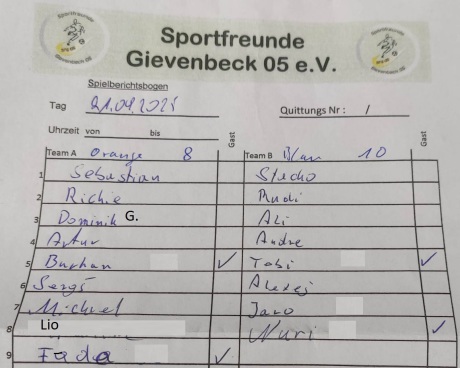 Sportfreunde
Gievenbeck 05 e.V.
Spielberichtsbogen
Tag 21.04.2025 Quittungs Nr: /
Uhrzeit von bis Gast Gast
Team A Orange 8 Team B Blau 10
1 Sebastian Stecho
2 Richie Rudi
3 Dominik G. Ali
4 Artur Andre
5 Burhan ✓ Tobi ✓
6 Sergej Alexej
7 Michael Jaro
8 Lio Nuri ✓
9 Fada ✓